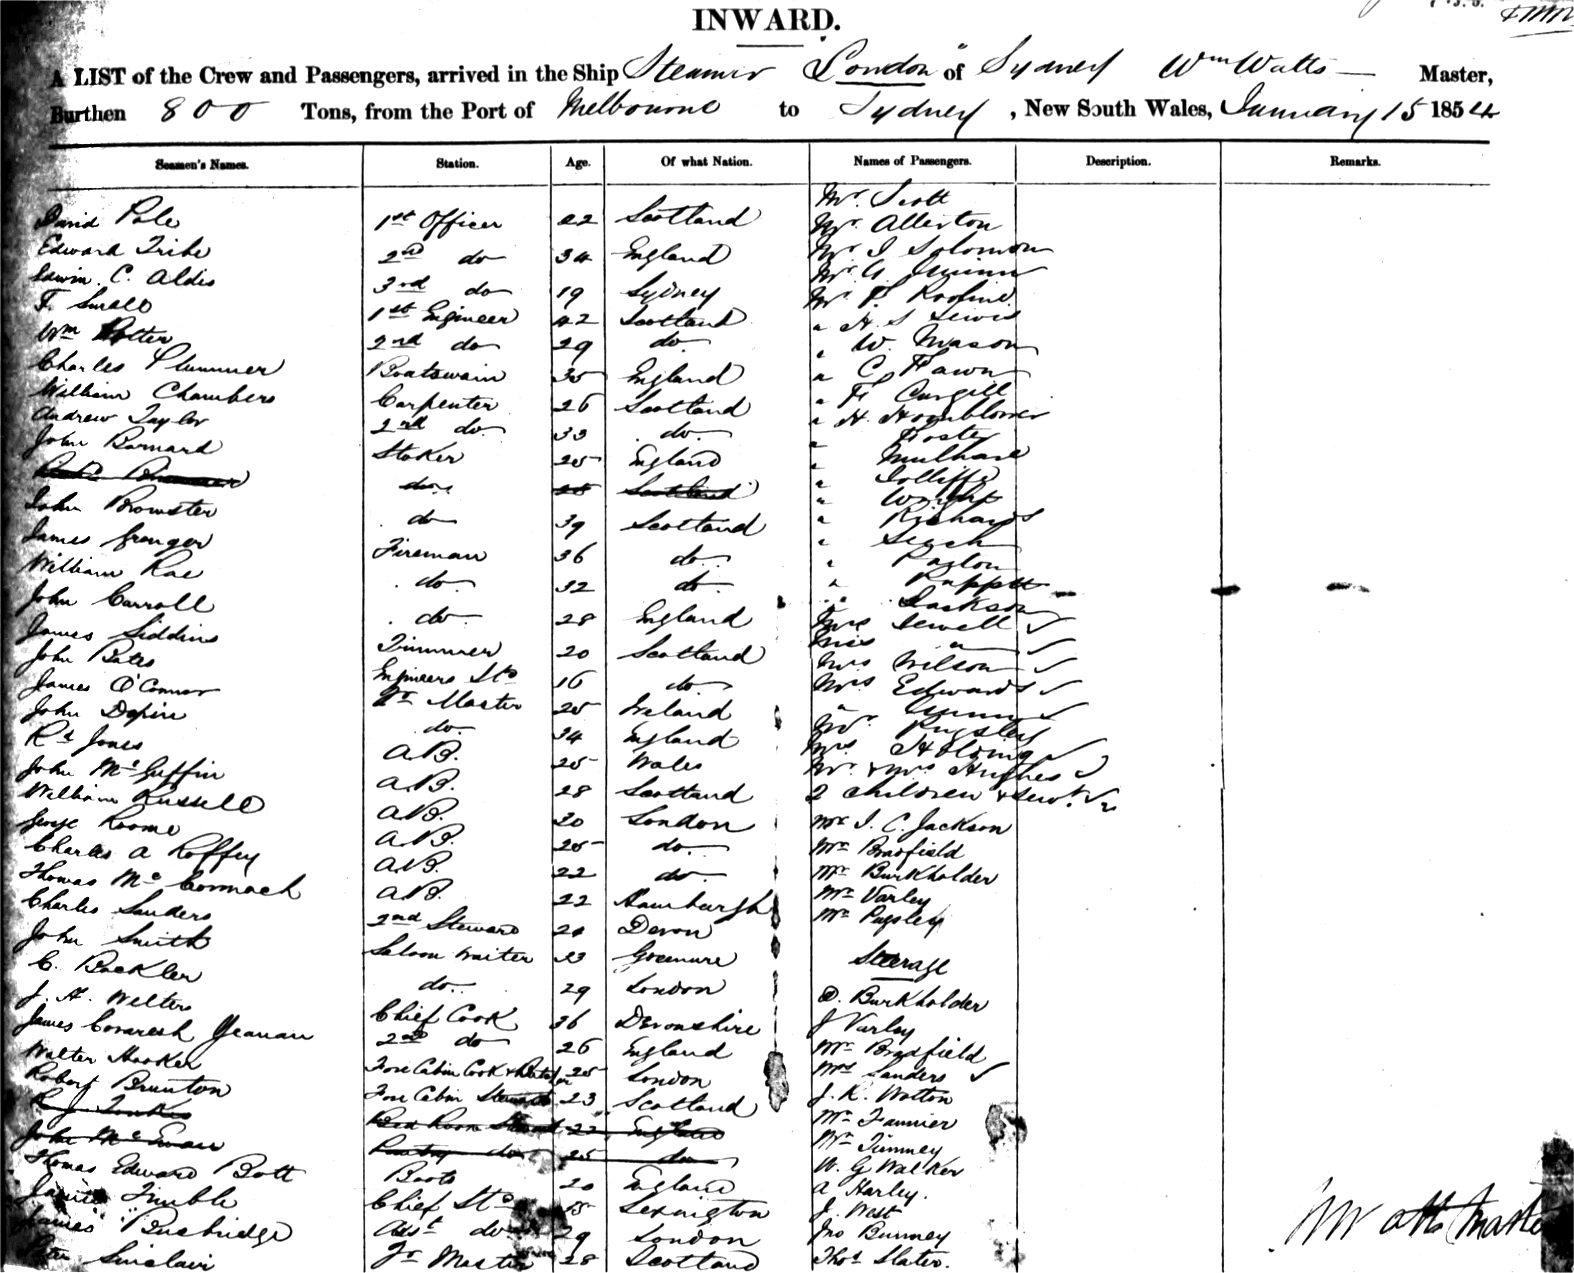 INWARD.
A LIST of the Crew and Passengers, arrived in the Ship Steamer "London" of Sydney Wm Watts Master,
Burthen 800 Tons, from the Port of Melbourne to Sydney, New South Wales, January 15 1854
Seamen's Names. Station. Age. Of what Nation. Names of Passengers. Description. Remarks.
Mr. Scott
David Pole 1st Officer 22 Scotland Mr. Allerton
Edward Tribe 2nd do 34 England Mr. I Solomon
Edwin C. Aldis 3rd do 19 Sydney Mr.
F. Small 1st Engineer 42 Scotland Mr.
Wm Potter 2nd do 29 do " H. S Lewis
Charles Plummer Boatswain 35 England " W. Mason
William Chambers Carpenter 26 Scotland " C. Fawn
Andrew Taylor 2nd do. 33 do. " Fr Cargill
John Barnard Stoker 25 England " H. Hornblower
do. 28 Scotland " Foster
John Browster do 39 Scotland " Mulhall
James Granger Fireman 36 do. " Jolliffe
William Rae do. 32 do. " Wright
John Carroll do. 28 England " Richards
James Siddins Trimmer 20 Scotland " Leach
John Bates Engineers Std 16 do. " Paxton
James O'Connor Qr Master 25 Ireland "
John Depin do. 34 England " Jackson
Rd Jones A.B. 25 Wales Mrs Sewell
John McGuffin A.B. 28 Scotland Miss "
William Russell A.B. 20 London Mrs Wilson
George Roome A.B. 25 do. Mrs Edwards
Charles A Roffey A.B. 22 do. "
Thomas McCormack A.B. 22 Hamburgh Mr. Pugsley
Charles Sanders 2nd Steward 20 Devon Mrs
John Smith Saloon Waiter 23 Mr. & Mrs Hughes
C. Backler do. 29 London 2 children & Servt.
J. H. Welter Chief Cook 36 Devonshire Mr I. C. Jackson
James 2nd do 26 England Mr Bradfield
Walter Hooker Fore Cabin Cook & 25 London Mr Burkholder
Robert Brunton Fore Cabin Steward 23 Scotland Mr Varley
R. J. 22 England Mr Pugsley
John McEwan Pantry do 25 do Steerage
Thomas Edward Bott Boots 20 England D. Burkholder
James Trimble Chief Std 15 Lexington J Varley
James Busbridge Asst do 29 London Mr Bradfield
Peter Sinclair Qr Master 28 Scotland Mrs Sanders
J. K. Wotton
Mr Farmier
Mr Timmey
W. G Walker
A Harley.
J. West
Jno Bunney
Thos Slater.
Master